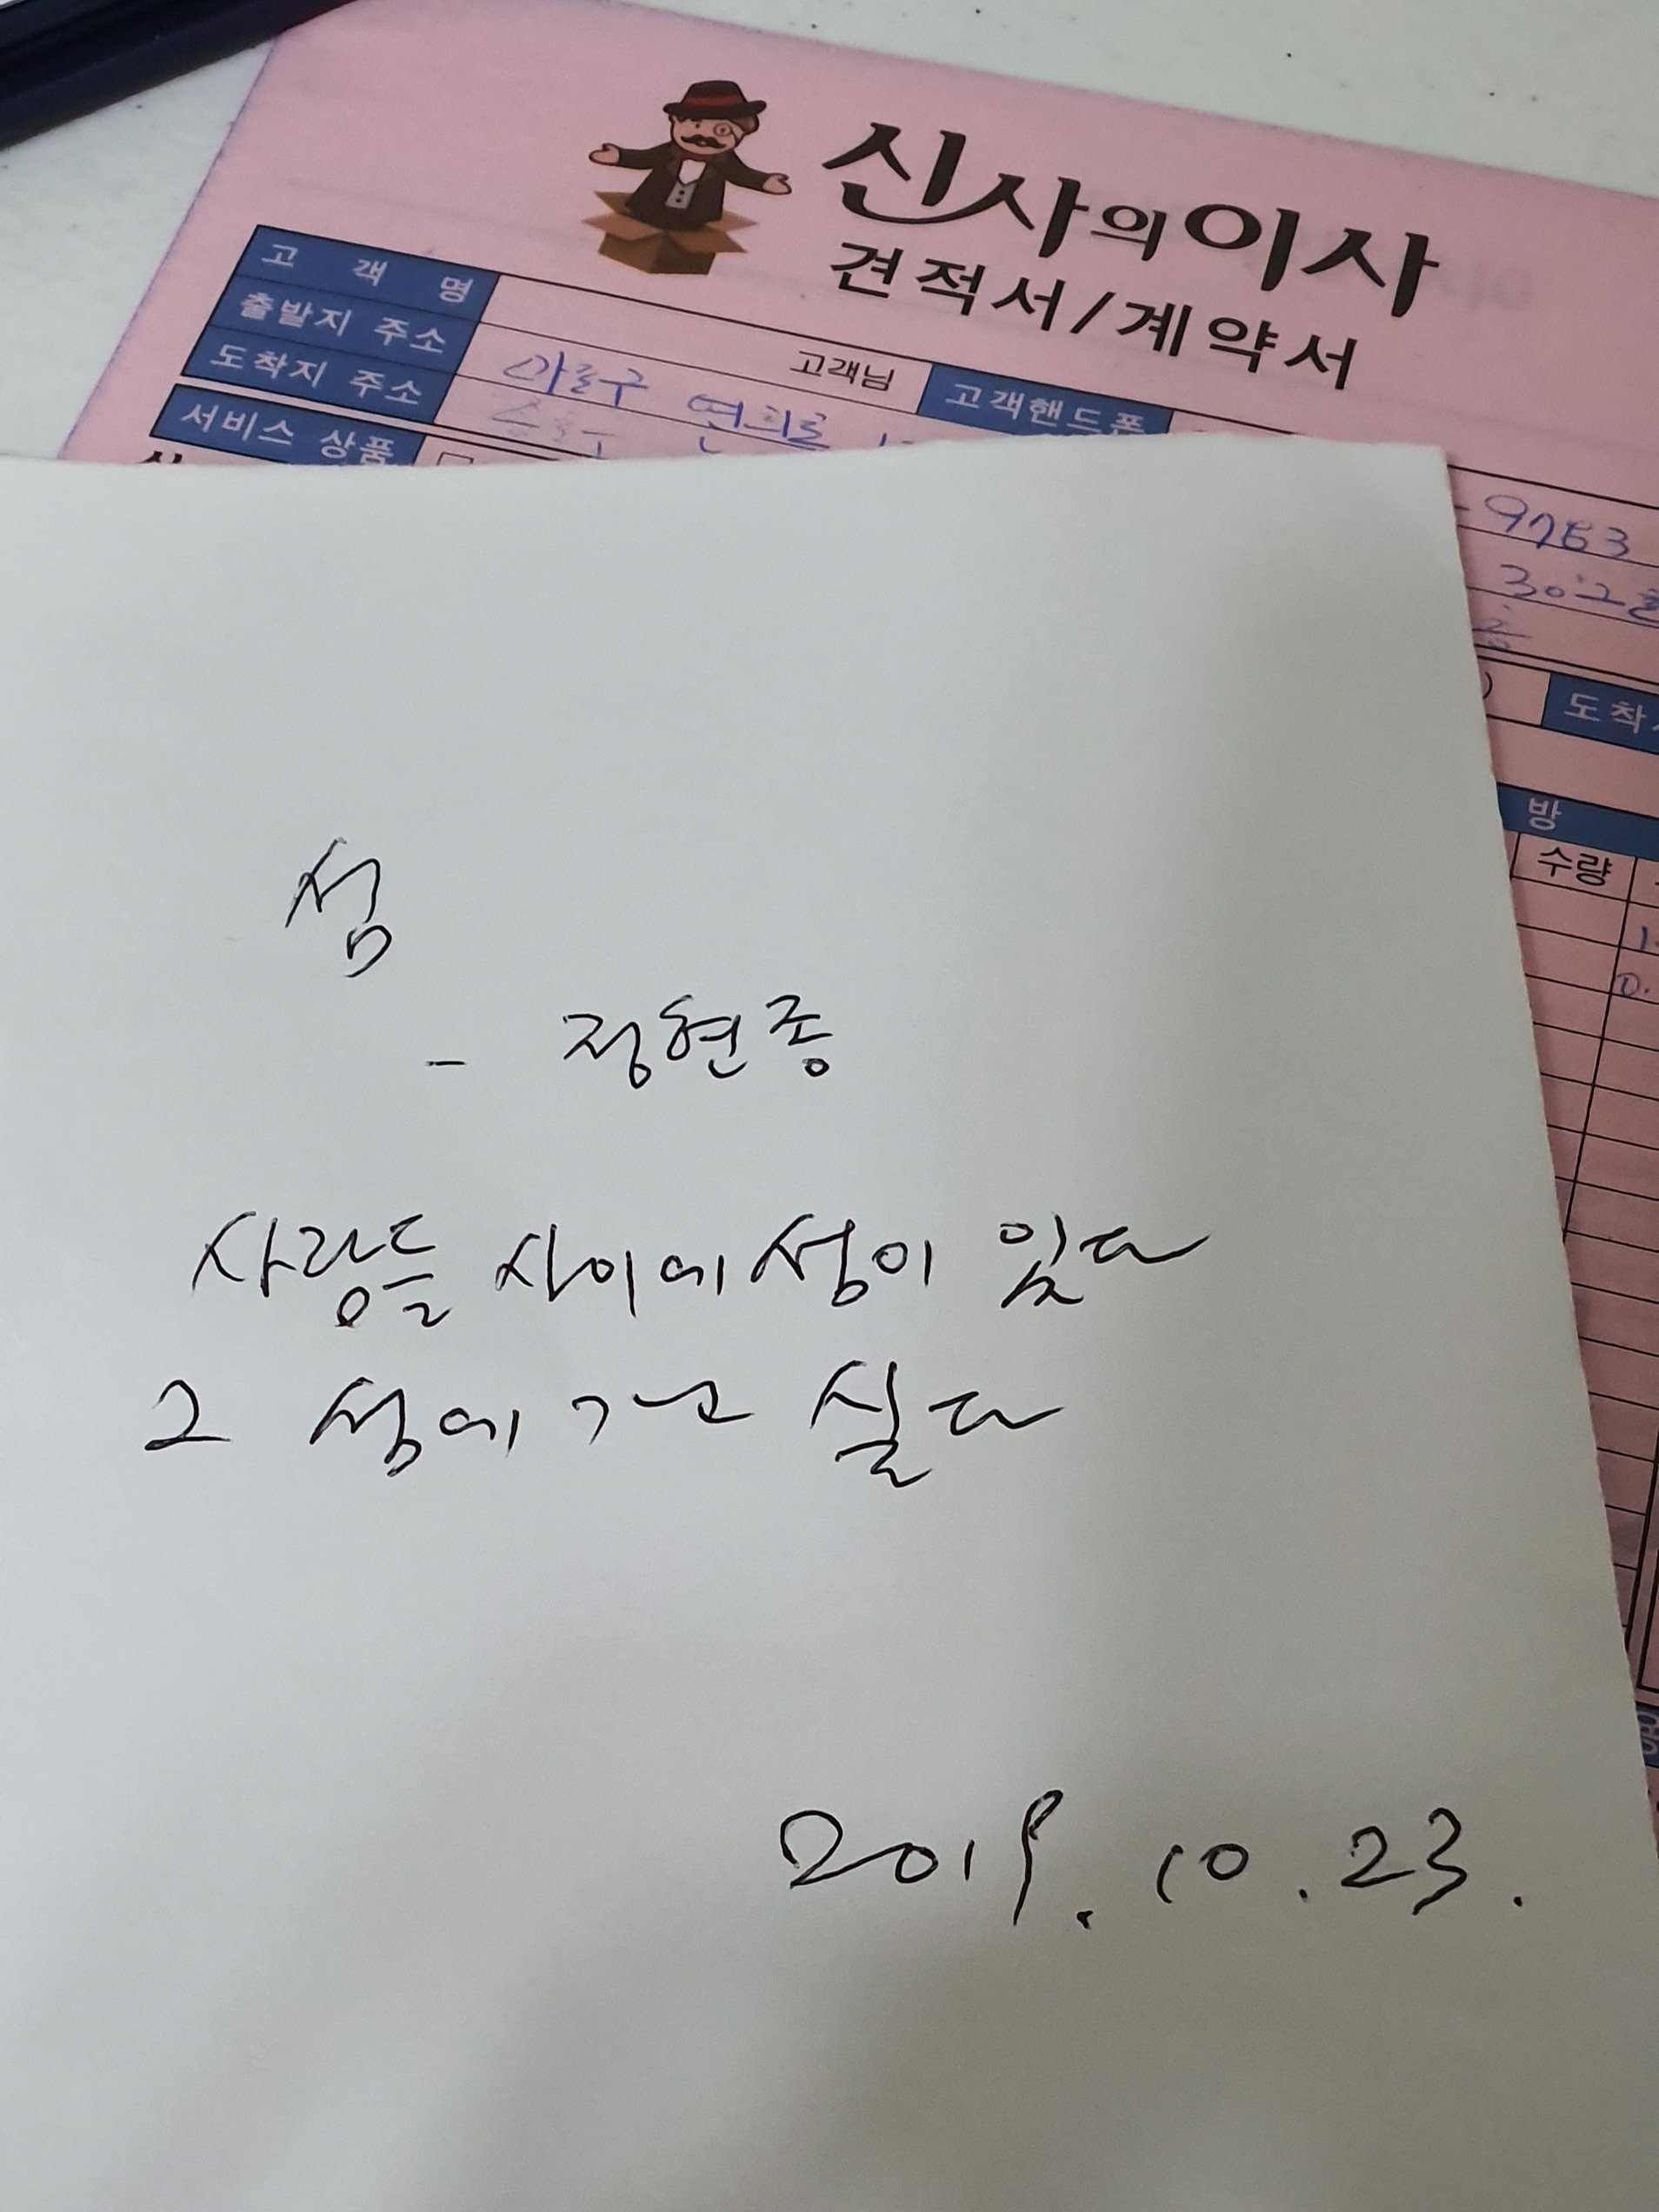 신사의이사
견적서/계약서
고객명
고객님 고객핸드폰
출발지 주소 마포구 연희로
도착지 주소
서비스 상품
-9763
302호
층
도착
방
수량
섬
- 정현종
사람들 사이에 섬이 있다
그 섬에 가고 싶다
2019.10.23.